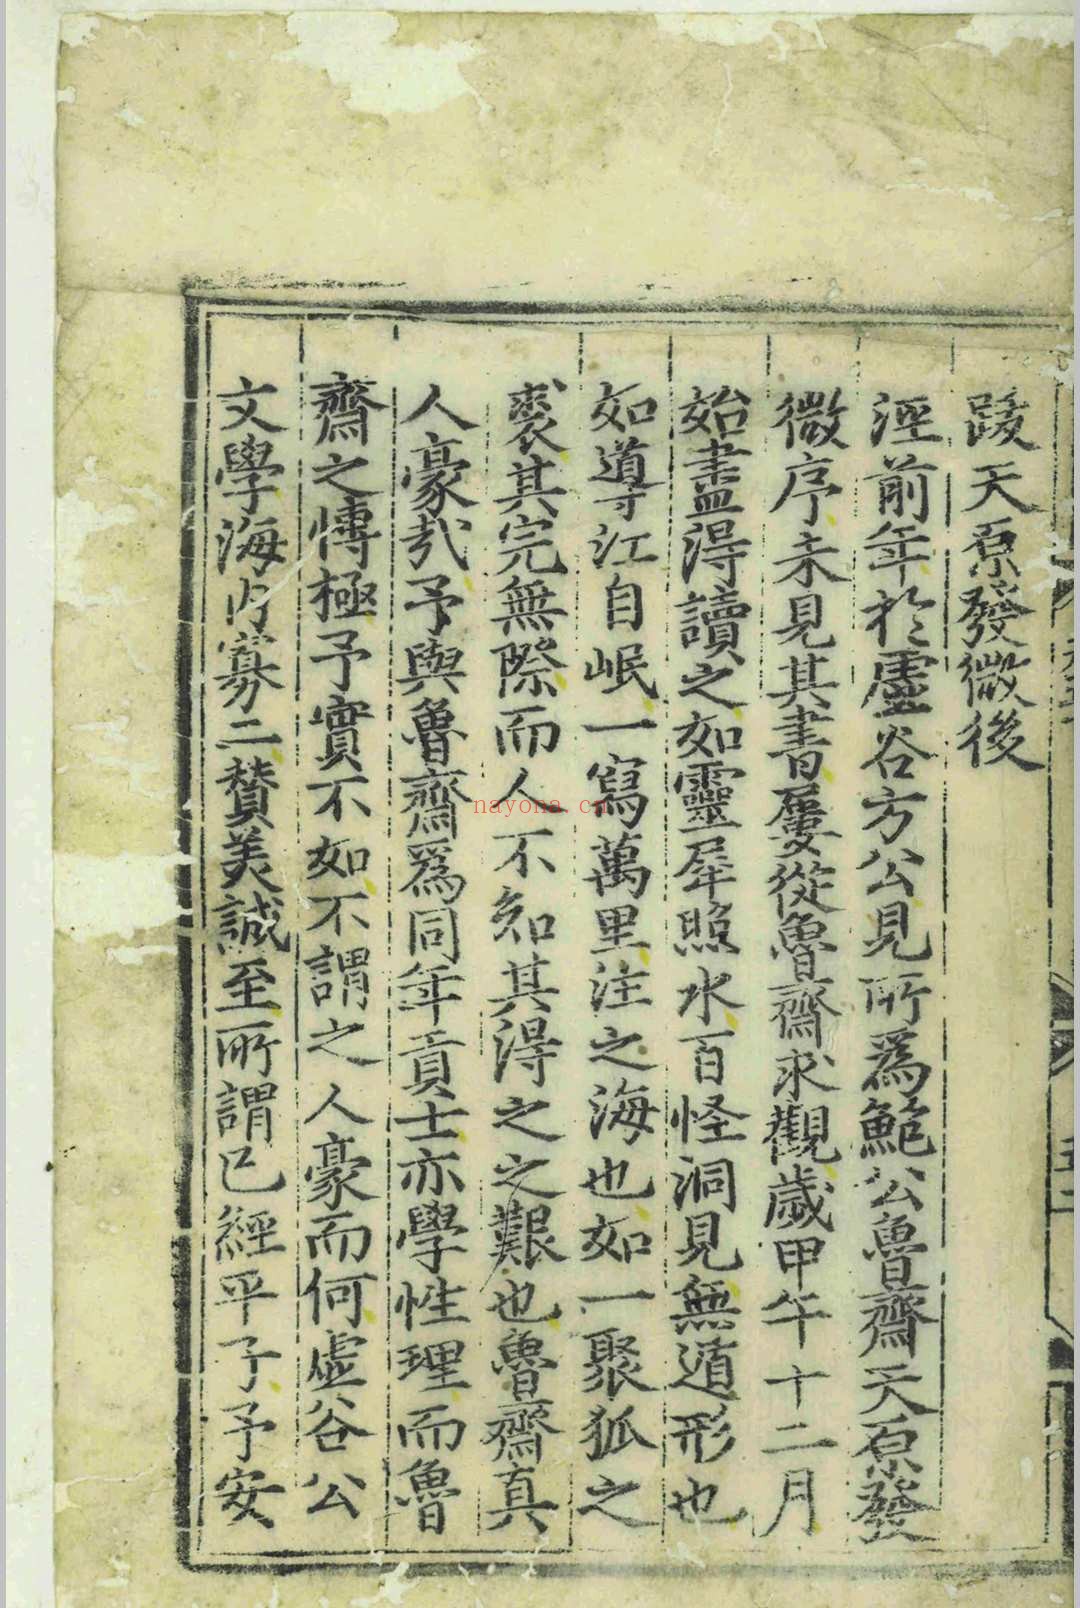 跋天原發微後
涇前年於虛谷方公見所爲鮑公魯齋天原發
微序未見其書屢從魯齋求觀歲甲午十二月
始盡得讀之如靈犀照水百怪洞見無遁形也
如導江自岷一寫萬里注之海也如一聚狐之
裘其完無際而人不知其得之之艱也魯齋真
人豪哉予與魯齋爲同年貢士亦學性理而魯
齋之慱極予實不如不謂之人豪而何虛谷公
文學海内寡二賛美誠至所謂已經平子予安
nayona.cn